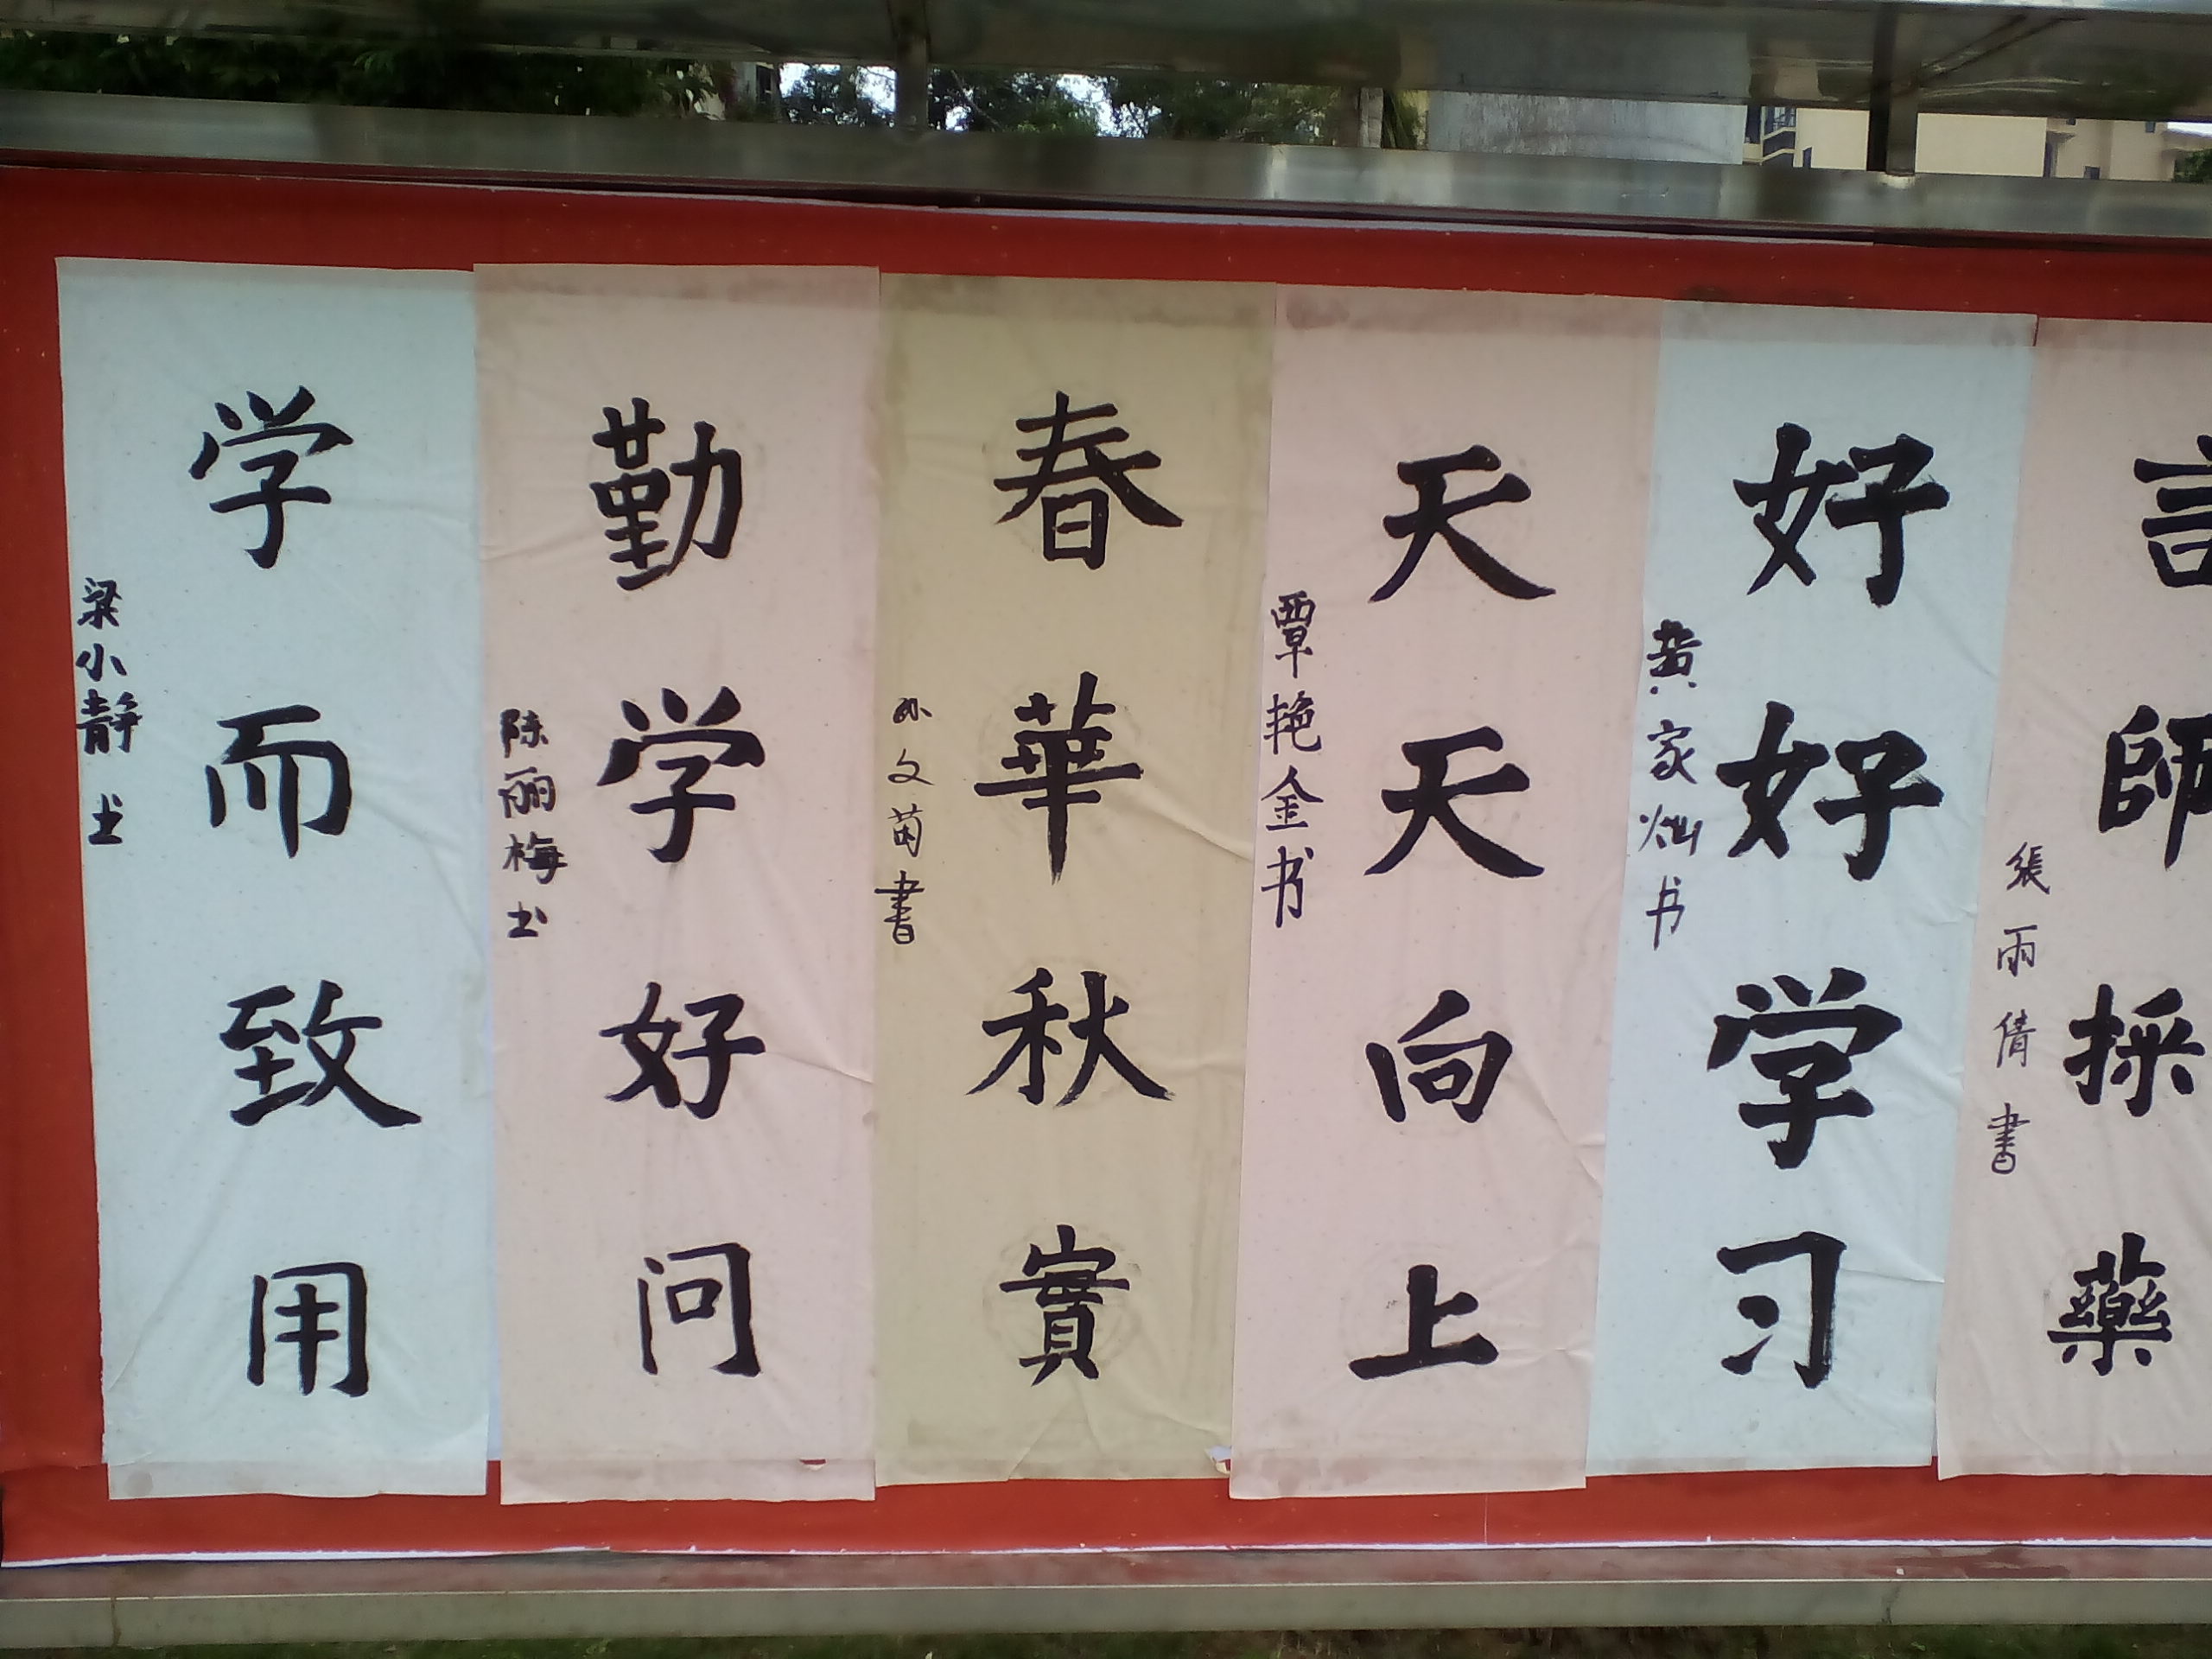 言師採藥
張雨倩書
好好学习
黄家灿书
天天向上
覃艳金书
春華秋實
孙文書
勤学好问
陈丽梅书
学而致用
梁小静书